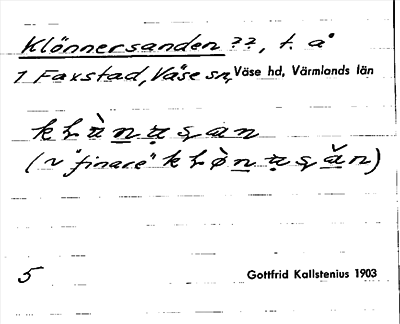 Klönnersanden ??, t. å
1 Faxstad, Väse sn, Väse hd, Värmlands län
(~ "finare"
5 Gottfrid Kallstenius 1903